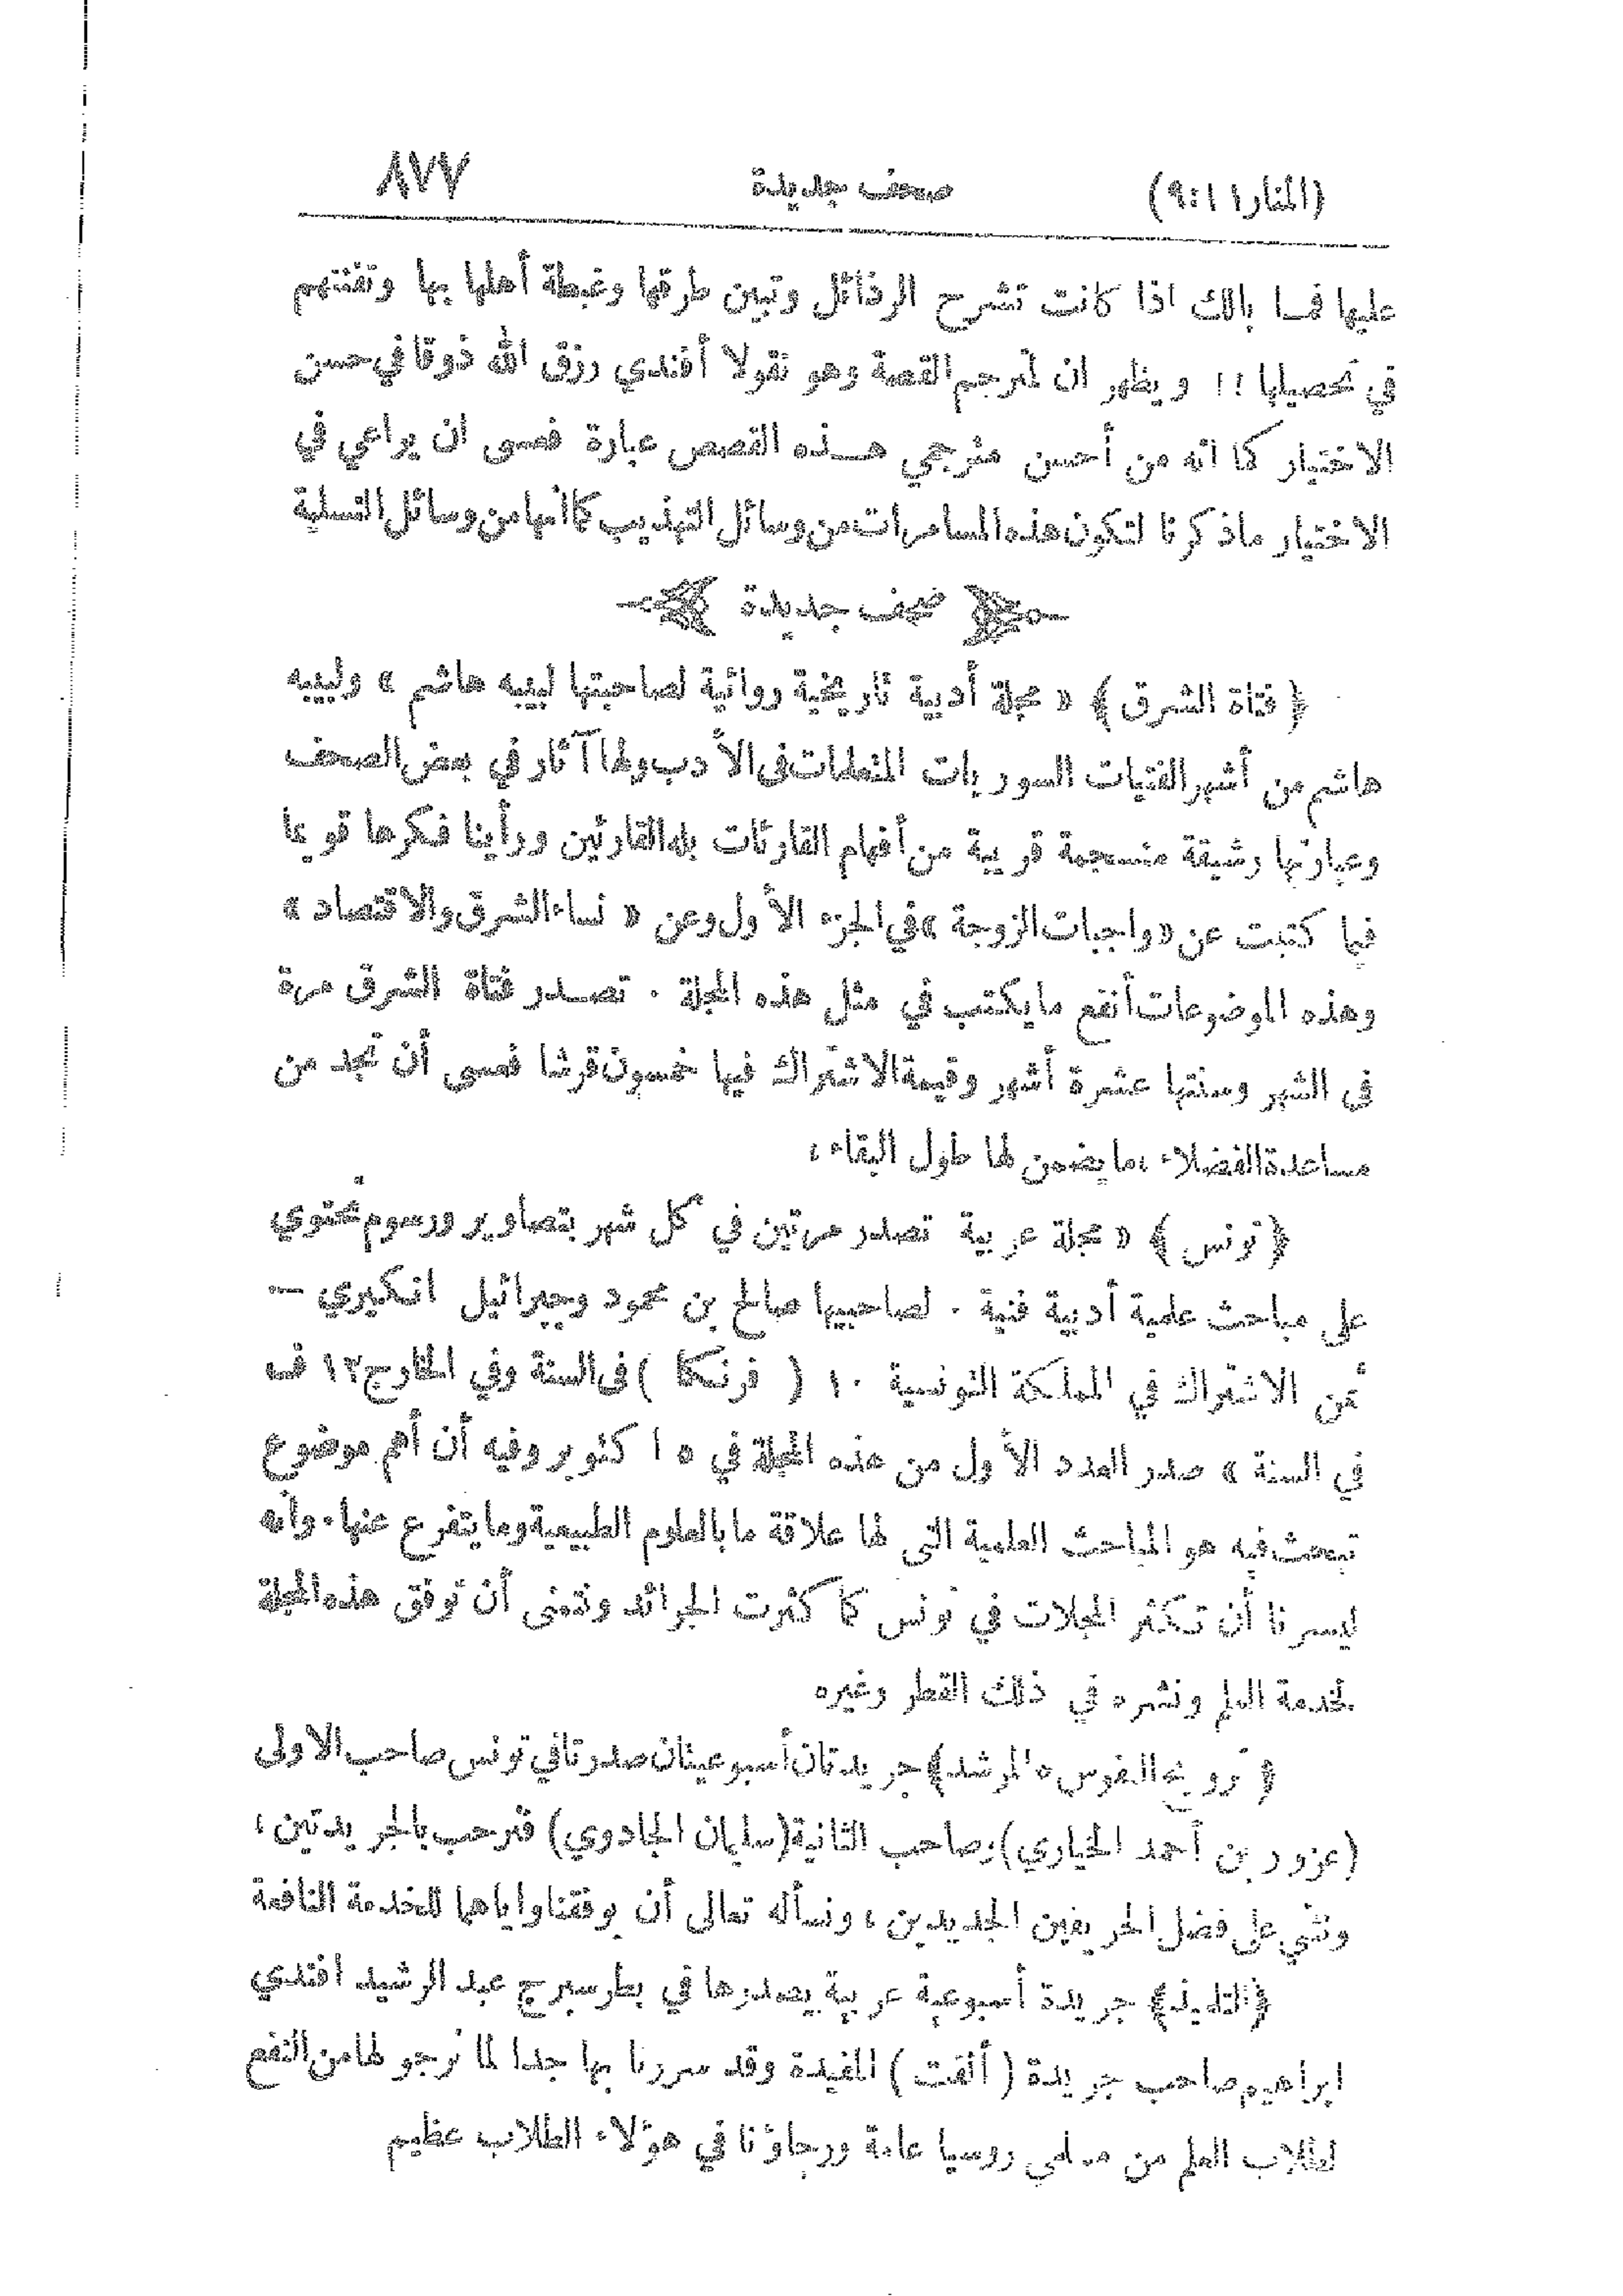 (المنار ١١:٩) صحف جديدة ٨٧٧
عليها فما بالك اذا كانت تشرح الرذائل وتبين طرقها وغبطة أهلها بها وتفننهم
في تحصيلها !! ويظهر ان لمترجم القصة وهو نقولا أفندي رزق الله ذوقا في حسن
الاختيار كما انه من أحسن مترجمي هذه القصص عبارة فعسى ان يراعي في
الاختيار ماذكرنا لتكون هذه المسامرات من وسائل التهذيب كما انها من وسائل التسلية
صحف جديدة
﴿ فتاة الشرق ﴾ « مجلة أدبية تاريخية روائية لصاحبتها لبيبه هاشم » ولبيبه
هاشم من أشهر الفتيات السوريات المتعلمات في الأدب ولها آثار في بعض الصحف
وعبارتها رشيقة منسجمة قريبة من أفهام القارئات بله القارئين ورأينا فكرها قويما
فيما كتبت عن « واجبات الزوجة » في الجزء الأول وعن « نساء الشرق والاقتصاد »
وهذه الموضوعات أنفع مايكتب في مثل هذه المجلة . تصدر فتاة الشرق مرة
في الشهر وسنتها عشرة أشهر وقيمة الاشتراك فيها خمسون قرشا فعسى أن تجد من
مساعدة الفضلاء ، مايضمن لها طول البقاء ،
﴿ تونس ﴾ « مجلة عربية تصدر مرتين في كل شهر بتصاوير ورسوم تحتوي
على مباحث علمية أدبية فنية . لصاحبيها صالح بن محمود وجبرائيل انكيري —
ثمن الاشتراك في المملكة التونسية ١٠ ( فرنكا ) في السنة وفي الخارج ١٢ ف
في السنة » صدر العدد الأول من هذه المجلة في ٥ اكتوبر وفيه أن أهم موضوع
تبحث فيه هو المباحث العلمية التي لها علاقة ما بالعلوم الطبيعية وما يتفرع عنها . وانه
ليسرنا أن تكثر المجلات في تونس كما كثرت الجرائد ونتمنى أن توفق هذه المجلة
لخدمة العلم ونشره في ذلك القطر وغيره
﴿ ترويح النفوس والمرشد ﴾ جريدتان أسبوعيتان صدرتا في تونس صاحب الاولى
(عزوز بن أحمد الخياري) وصاحب الثانية (سليمان الجادوي) فنرحب بالجريدتين ،
ونثني على فضل الحريفين الجديدين ، ونسأله تعالى أن يوفقنا واياهما للخدمة النافعة
﴿ التلميذ ﴾ جريدة أسبوعية عربية يصدرها في بطرسبرج عبد الرشيد افندي
ابراهيم صاحب جريدة ( ألفت ) المفيدة وقد سررنا بها جدا لما نرجو لها من النفع
لطلاب العلم من مسلمي روسيا عامة ورجاؤنا في هؤلاء الطلاب عظيم